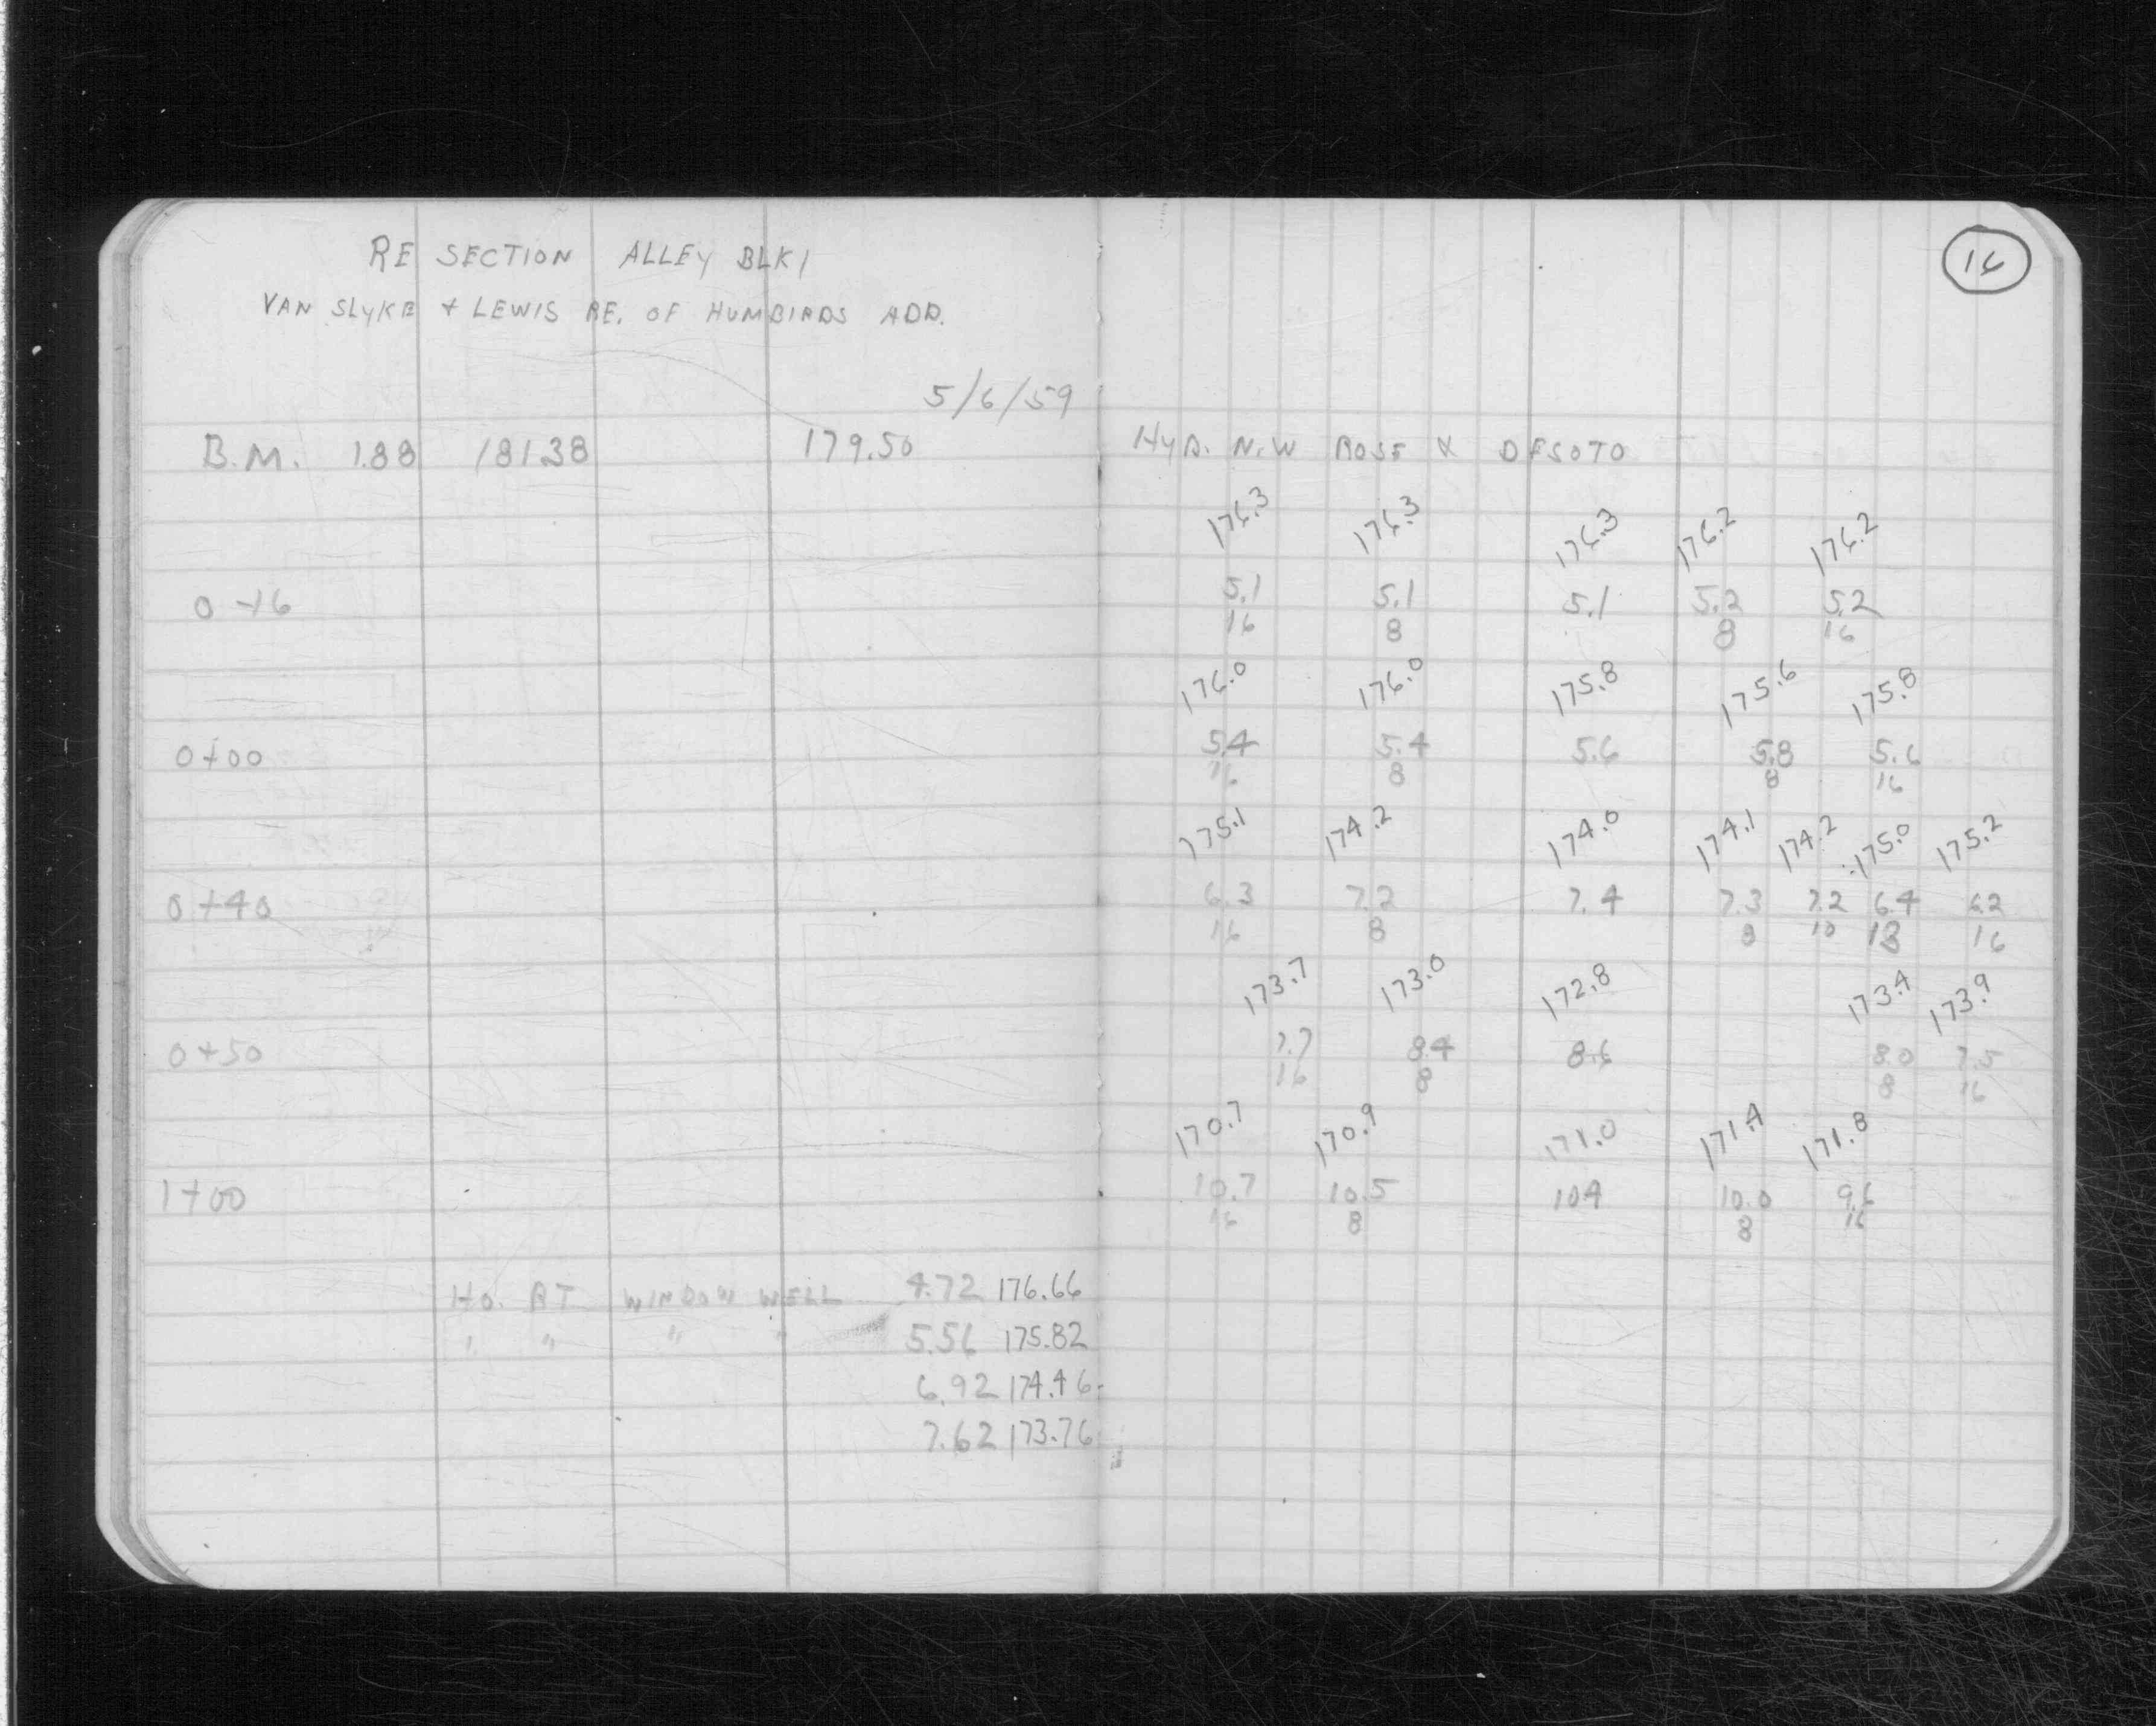 16
RE SECTION ALLEY BLK 1
VAN SLYKE + LEWIS RE. OF HUMBIRDS ADD.
5/6/59
B.M. 1.88 181.38 179.50 HYD. N.W ROSE & DESOTO
176.3 176.3 176.3 176.2 176.2
0-16 5.1 5.1 5.1 5.2 5.2
16 8 8 16
176.0 176.0 175.8 175.6 175.8
0+00 5.4 5.4 5.6 5.8 5.6
16 8 8 16
175.1 174.2 174.0 174.1 174.2 175.0 175.2
0+40 6.3 7.2 7.4 7.3 7.2 6.4 6.2
16 8 8 10 13 16
173.7 173.0 172.8 173.4 173.9
0+50 7.7 8.4 8.6 8.0 7.5
16 8 8 16
170.7 170.9 171.0 171.4 171.8
1+00 10.7 10.5 10.4 10.0 9.6
16 8 8 16
HO. AT WINDOW WELL 4.72 176.66
" " " " 5.56 175.82
6.92 174.46
7.62 173.76